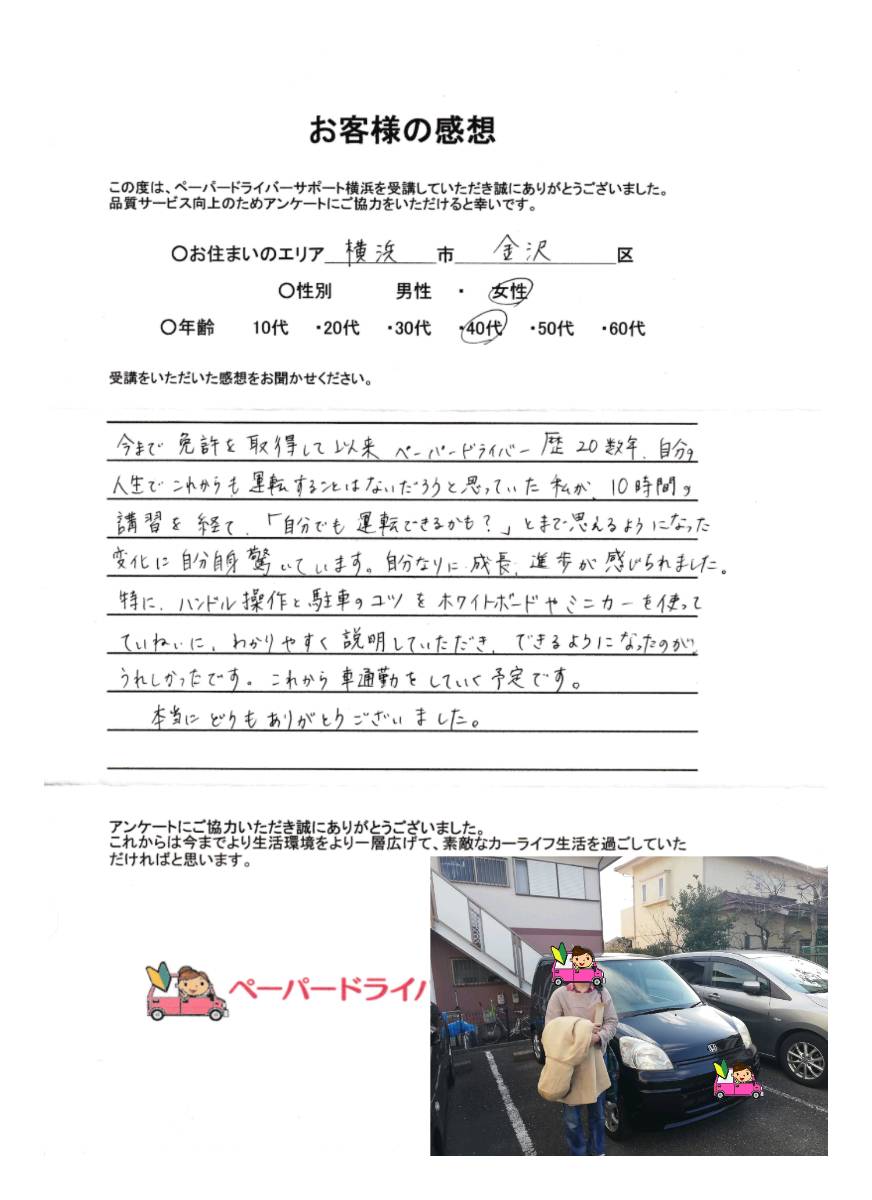 お客様の感想
この度は、ペーパードライバーサポート横浜を受講していただき誠にありがとうございました。
品質サービス向上のためアンケートにご協力をいただけると幸いです。
〇お住まいのエリア 横浜 市 金沢 区
〇性別 男性 ・ 女性
〇年齢 10代 ・20代 ・30代 ・40代 ・50代 ・60代
受講をいただいた感想をお聞かせください。
今まで 免許を 取得して以来 ペーパードライバー 歴 20数年、自分の
人生でこれからも運転することはないだろうと思っていた私が、10時間の
講習を経て、「自分でも運転できるかも?」とまで思えるようになった
変化に自分自身驚いています。自分なりに成長、進歩が感じられました。
特に、ハンドル操作と駐車のコツをホワイトボードやミニカーを使って
ていねいに、わかりやすく説明していただき、できるようになったのが、
うれしかったです。これから車通勤をしていく予定です。
本当にどうもありがとうございました。
アンケートにご協力いただき誠にありがとうございました。
これからは今までより生活環境をより一層広げて、素敵なカーライフ生活を過ごしていた
だければと思います。
ペーパードライバ